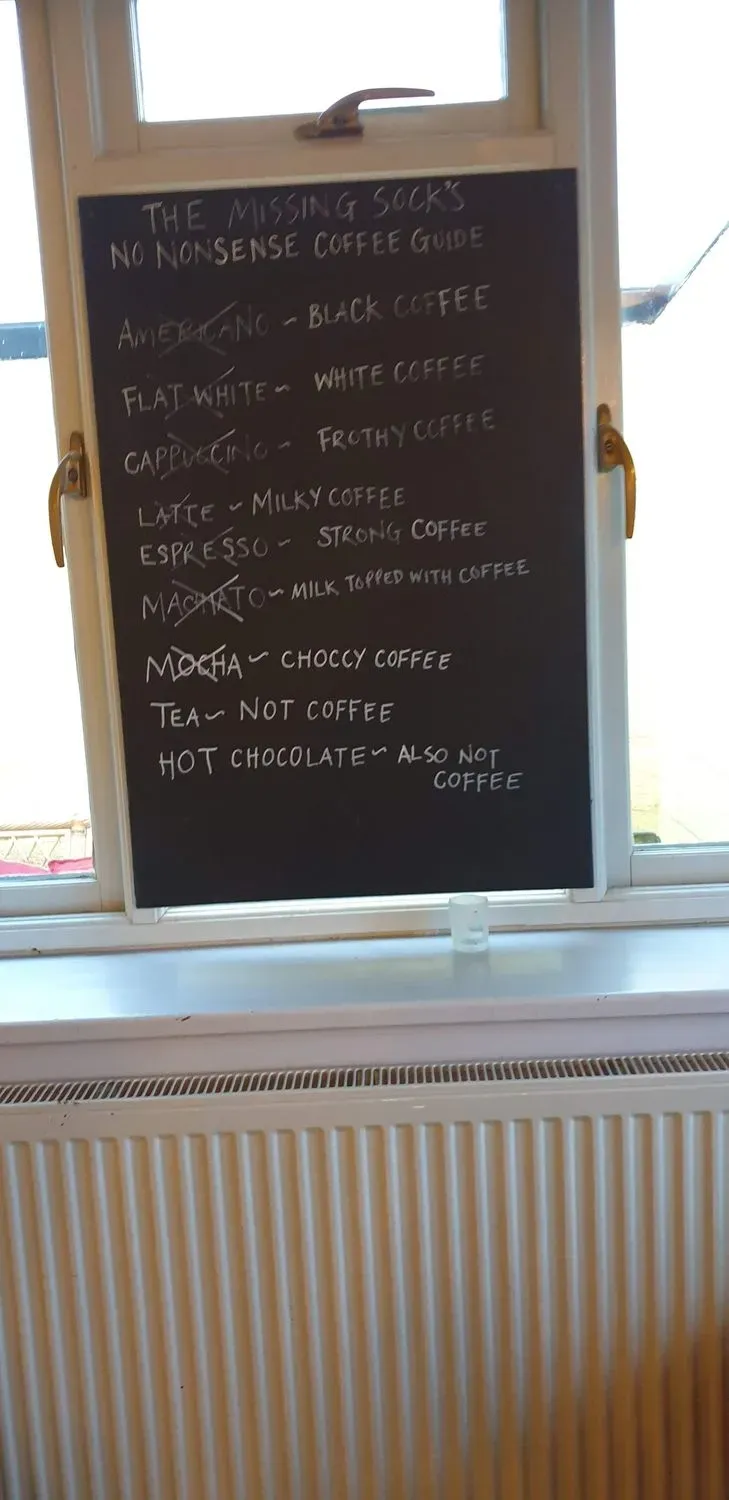 THE MISSING SOCK'S
NO NONSENSE COFFEE GUIDE
AMERICANO ~ BLACK COFFEE
FLAT WHITE ~ WHITE COFFEE
CAPPUCCINO ~ FROTHY COFFEE
LATTE ~ MILKY COFFEE
ESPRESSO ~ STRONG COFFEE
MACHATO ~ MILK TOPPED WITH COFFEE
MOCHA ~ CHOCCY COFFEE
TEA ~ NOT COFFEE
HOT CHOCOLATE ~ ALSO NOT
COFFEE